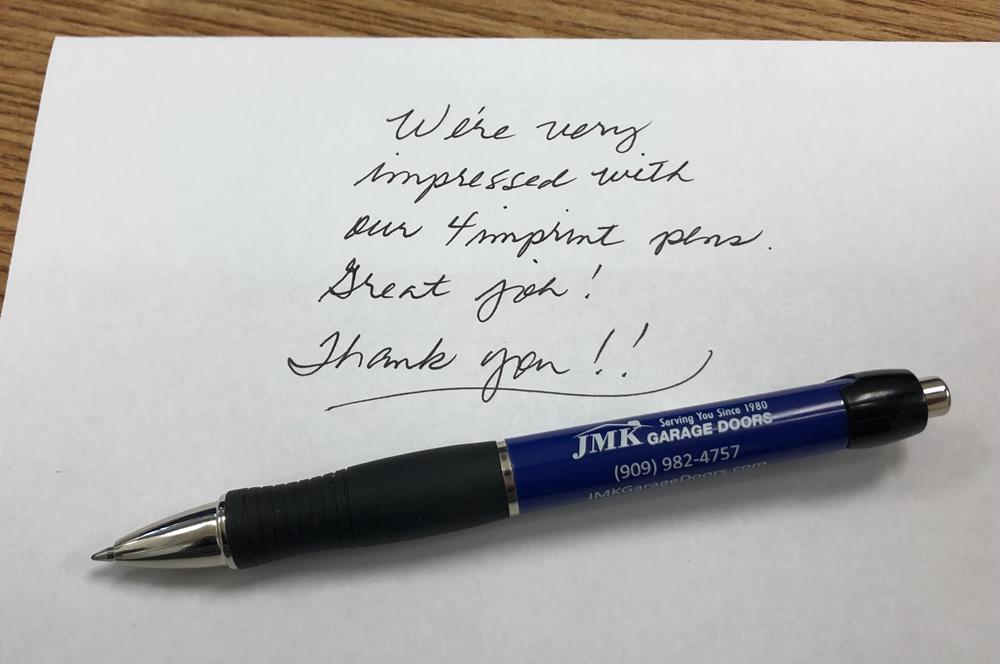 We're very
impressed with
our 4imprint pens.
Great job!
Thank you!!
Serving You Since 1980
JMK GARAGE DOORS
(909) 982-4757
JMKGarageDoors.com